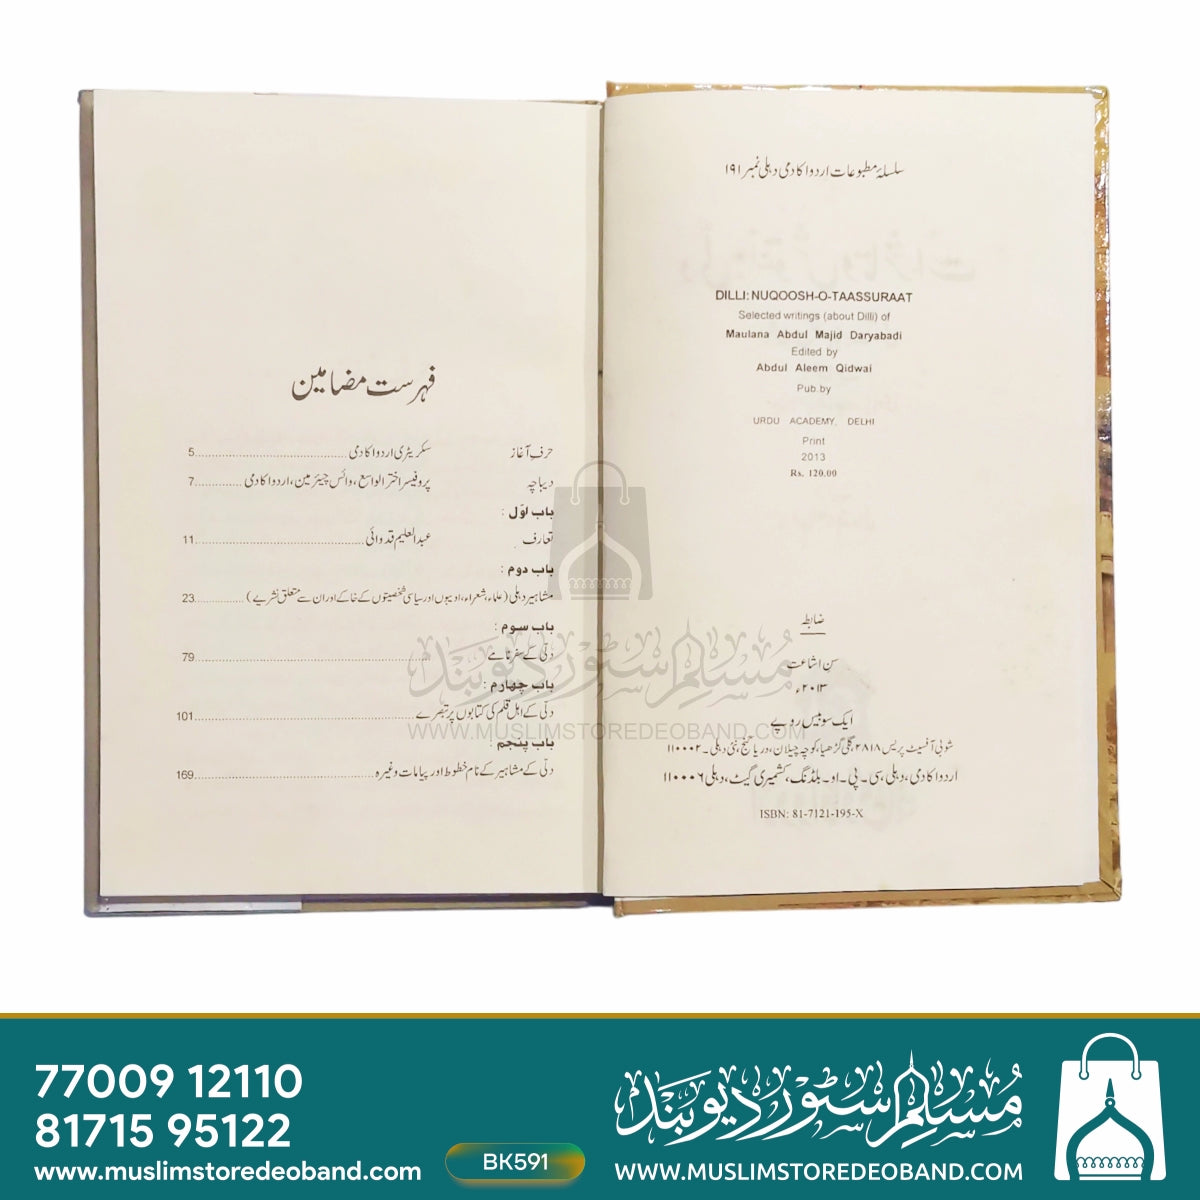 سلسلۂ مطبوعات اردو اکادمی دہلی نمبر ۱۹۱
DILLI: NUQOOSH-O-TAASSURAAT
Selected writings (about Dilli) of
Maulana Abdul Majid Daryabadi
Edited by
Abdul Aleem Qidwai
Pub.by
URDU ACADEMY, DELHI
Print
2013
Rs. 120.00
ضابطہ
سن اشاعت
۲۰۱۳ء
ایک سو بیس روپے
شوبی آفسیٹ پریس ۲۸۱۸ گلی گڑھیا، کوچہ چیلان، دریا گنج، نئی دہلی۔ ۱۱۰۰۰۲
اردو اکادمی، دہلی، سی۔ پی۔ او۔ بلڈنگ، کشمیری گیٹ، دہلی ۱۱۰۰۰۶
ISBN: 81-7121-195-X
فہرست مضامین
حرفِ آغاز سکریٹری اردو اکادمی 5
دیباچہ پروفیسر اختر الواسع، وائس چیئرمین، اردو اکادمی 7
باب اوّل :
تعارف عبدالعلیم قدوائی 11
باب دوم :
مشاہیرِ دہلی (علماء، شعراء، ادیبوں اور سیاسی شخصیتوں کے خاکے اور ان سے متعلق نشریے) 23
باب سوم :
دلّی کے سفرنامے 79
باب چہارم :
دلّی کے اہل قلم کی کتابوں پر تبصرے 101
باب پنجم :
دلّی کے مشاہیر کے نام خطوط اور پیامات وغیرہ 169
مسلم سٹور دیوبند
WWW.MUSLIMSTOREDEOBAND.COM
77009 12110
81715 95122
www.muslimstoredeoband.com
BK591
مسلم سٹور دیوبند
WWW.MUSLIMSTOREDEOBAND.COM